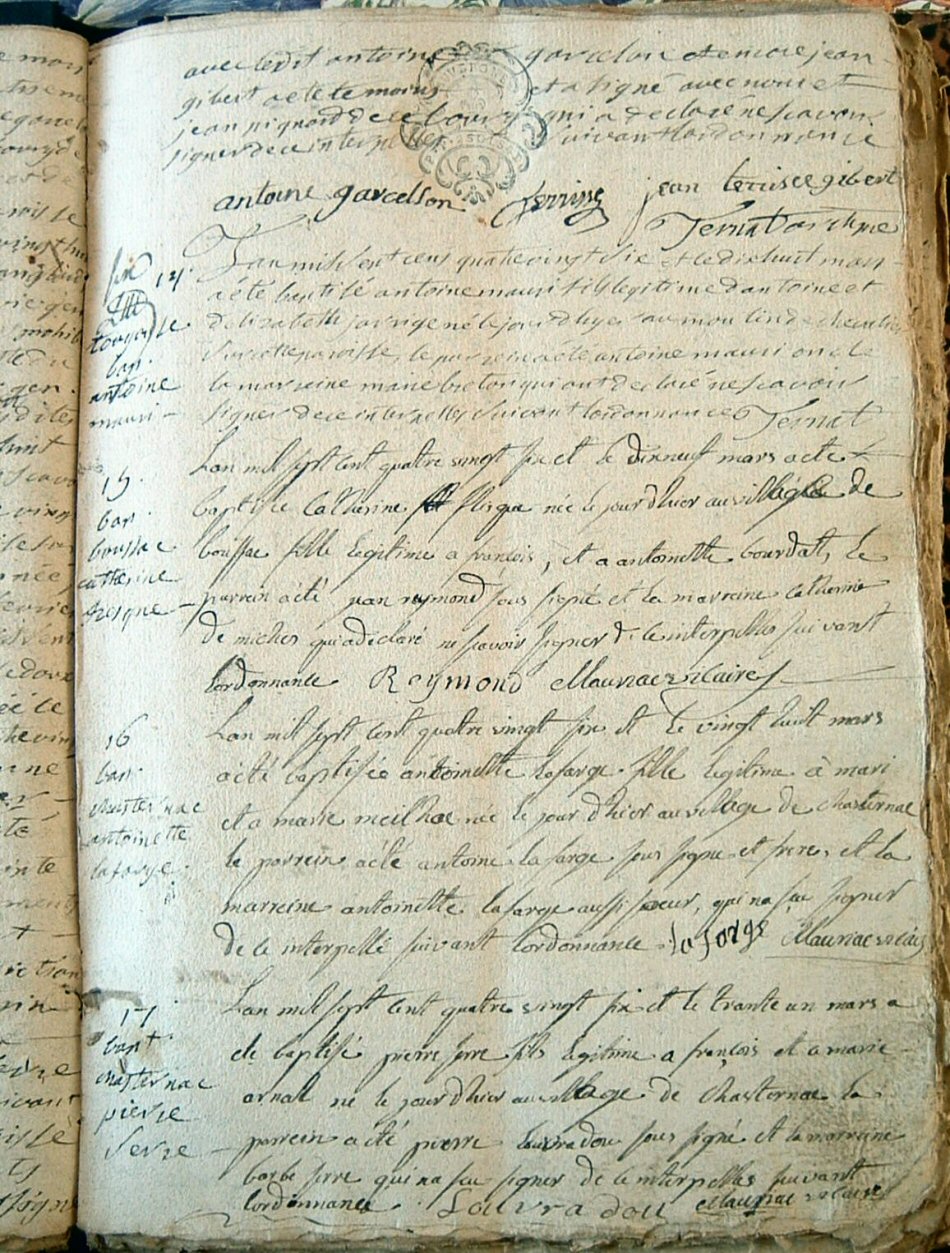 avec ledit antoine garcelon et encore jean
gibert a été temoins et a signé avec nous et
jean pignord de ce bourg qui a declare ne scavoir
signer de ce interpelles suivant lordonnance
antoine garcelson jean gibert
Ternat
14
ban.
antoine
mauri
Lan mil sept cens quatre vingt six et le dix huit mars
a été baptisé antoine mauri fils legitime dantoine et
delizabeth né le jour dhyer au moulin de
sur cette paroisse, le parrein a été antoine mauri
la marreine marie breton qui ont declaré ne scavoir
signer de ce interpelles suivant lordonnance Ternat
15
ban.
boussac
catherine
fresque
Lan mil sept cent quatre vingt six et le dixneuf mars a ete
baptisée Catherine née le jour dhier au village de
boissac fille legitime a francois, et a antoinette bourdat, le
parrein a été jean reymond sous signé et la marreine catherine
de miches qui a declaré ne scavoir signer de ce interpellés suivant
lordonnance Reymond Mauriac vicaire
16
ban.
chasternac
antoinette
lafarge
Lan mil sept cent quatre vingt six et le vingt huit mars
a été baptisée antoinette lafarge fille legitime à mari
et a marie meilhac née le jour dhier au village de chasternac
le parrein a été antoine lafarge sous signe et frere, et la
marreine antoinette lafarge aussi soeur, qui na su signer
de ce interpellé suivant lordonnance lafarge Mauriac vicaire
17
bapt
chasternac
pierre
serre
Lan mil sept cent quatre vingt six et le trante un mars a
ete baptisé pierre serre fils legitime a françois et a marie
arnal né le jour dhier au village de Chasternac le
parrein a été pierre lauradou sous signé et la marreine
barbe serre qui na su signer de ce interpellés suivant
lordonnance Lauradou Mauriac vicaire